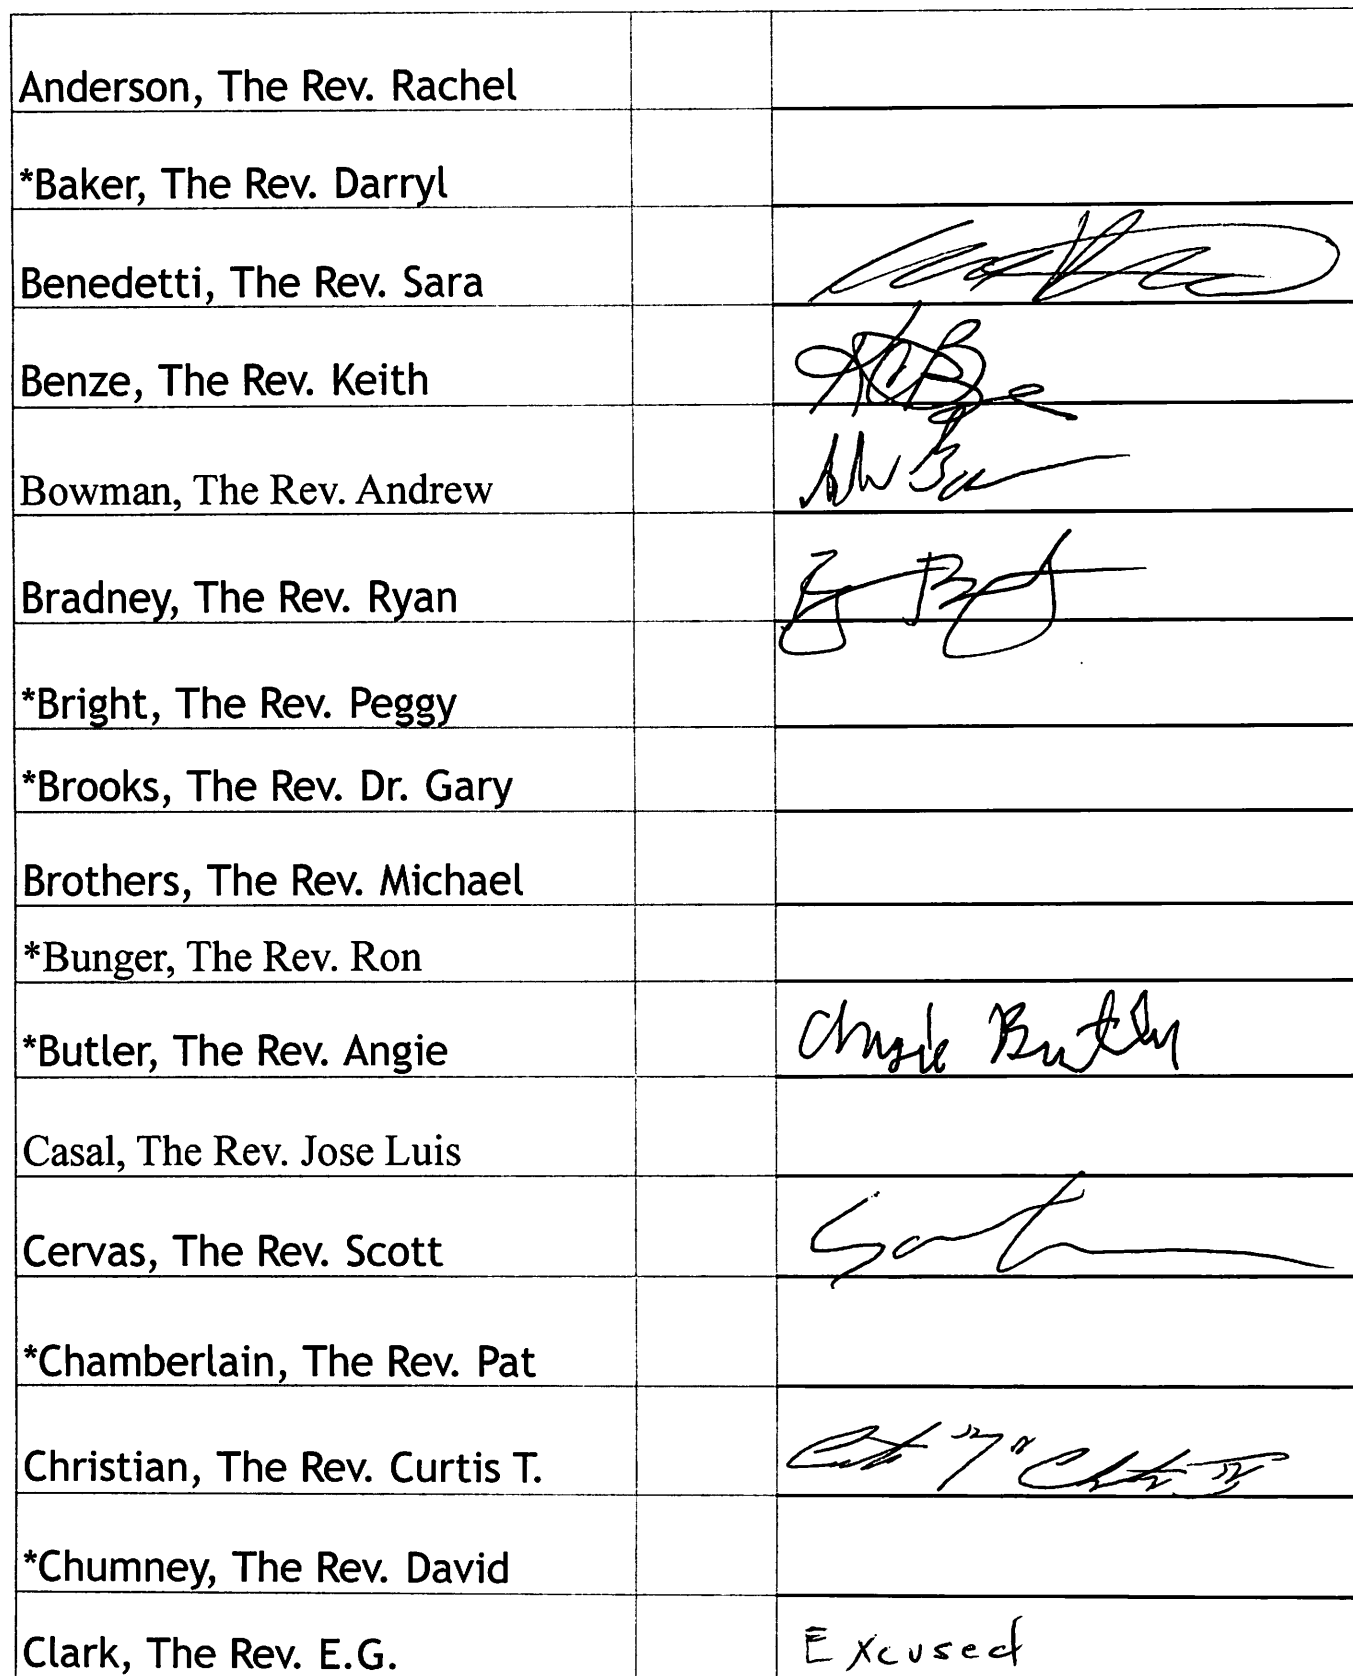 Anderson, The Rev. Rachel
*Baker, The Rev. Darryl
Benedetti, The Rev. Sara
Benze, The Rev. Keith
Bowman, The Rev. Andrew
Bradney, The Rev. Ryan
*Bright, The Rev. Peggy
*Brooks, The Rev. Dr. Gary
Brothers, The Rev. Michael
*Bunger, The Rev. Ron
*Butler, The Rev. Angie Angie Butler
Casal, The Rev. Jose Luis
Cervas, The Rev. Scott
*Chamberlain, The Rev. Pat
Christian, The Rev. Curtis T.
*Chumney, The Rev. David
Clark, The Rev. E.G. Excused